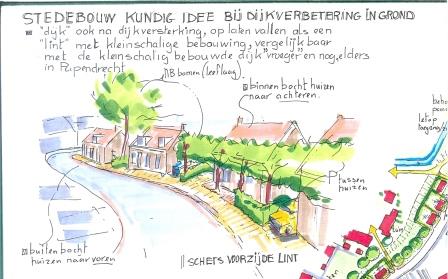 STEDEBOUW KUNDIG IDEE BIJ DIJKVERBETERING IN GROND
"dijk" ook na dijkversterking, op laten vallen als een
"lint" met kleinschalige bebouwing, vergelijkbaar
met de kleinschalig bebouwde dijk "vroeger" en nog elders
in Papendrecht
NB bomen (leeflaag)
binnen bocht huizen
naar achteren.
P tussen
huizen
buiten bocht
huizen naar voren
SCHETS VOORZIJDE LINT
tuin